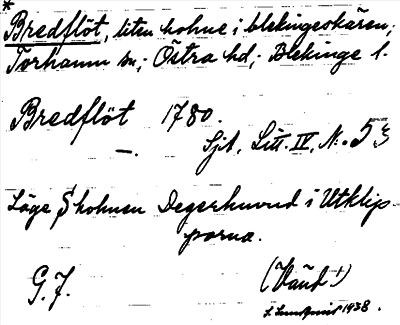 *
Bredflöt, liten holme i blekingeskären;
Torhamn sn; Östra hd; Blekinge l.
Bredflöt 1780.
—. Sjk. Litt. IV, N:o 53
Läge S holmen Degerhuvud i Utklip-
porna.
G. F.
1938.